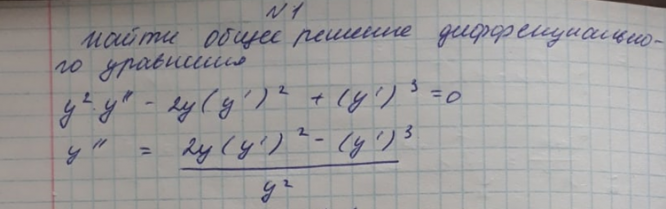 N1
Найти общее решение дифференциально-
го уравнения
y²·y'' - 2y(y')² + (y')³ = 0
y'' = 2y(y')² - (y')³
y²